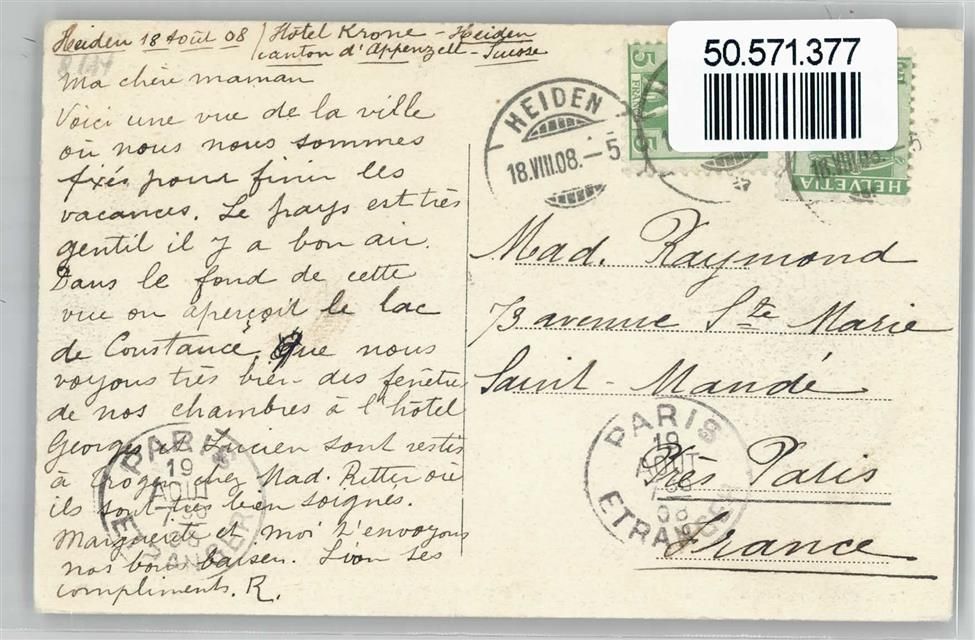 Heiden 18 Août 08 / Hôtel Krone - Heiden
canton d'Appenzell - Suisse
Ma chère maman
Voici une vue de la ville
où nous nous sommes
fixés pour finir les
vacances. Le pays est très
gentil il y a bon air.
Dans le fond de cette
vue on aperçoit le lac
de Constance, que nous
voyons très bien des fenêtres
de nos chambres à l'hôtel
Georges et Lucien sont restés
à Trogen chez Mad. Ritter où
ils sont très bien soignés.
Marguerite et moi t'envoyons
nos bons baisers. Lion ses
compliments. R.
50.571.377
HEIDEN
18.VIII.08.-5
5
FRANCO
5
18.VIII.08.-5
HELVETIA
Mad. Raymond
73 avenue Ste Marie
Saint-Mandé
Près Paris
France
PARIS
19
AOUT
7 30
08
ETRANGER
PARIS
19
AOUT
7 30
08
ETRANGER